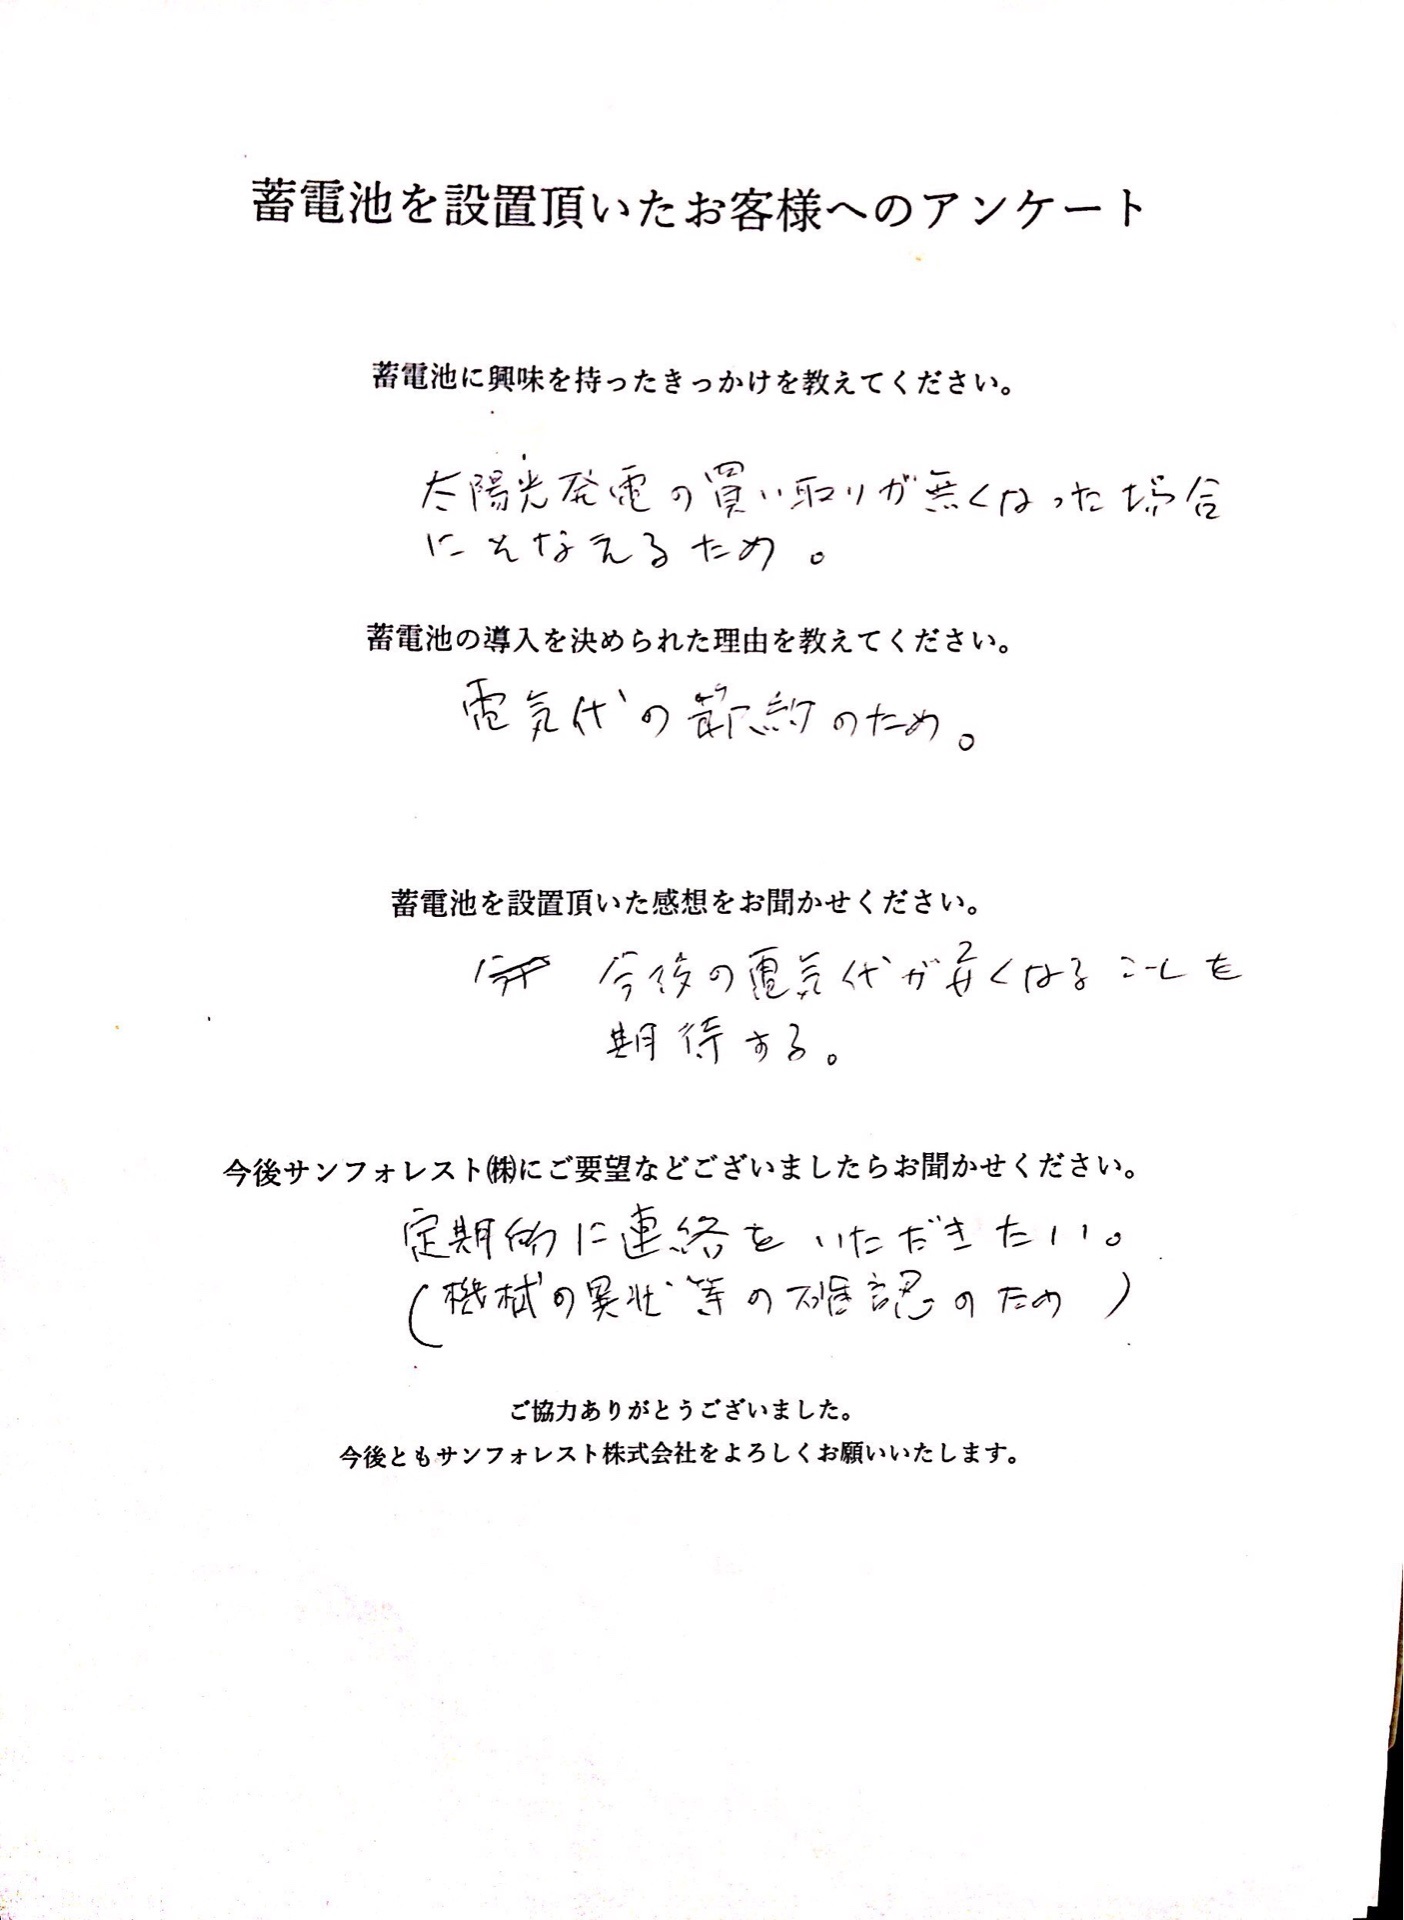 蓄電池を設置頂いたお客様へのアンケート
蓄電池に興味を持ったきっかけを教えてください。
太陽光発電の買い取りが無くなった場合
にそなえるため。
蓄電池の導入を決められた理由を教えてください。
電気代の節約のため。
蓄電池を設置頂いた感想をお聞かせください。
今後の電気代が安くなることを
期待する。
今後サンフォレスト㈱にご要望などございましたらお聞かせください。
定期的に連絡をいただきたい。
(機械の異状等の確認のため)
ご協力ありがとうございました。
今後ともサンフォレスト株式会社をよろしくお願いいたします。